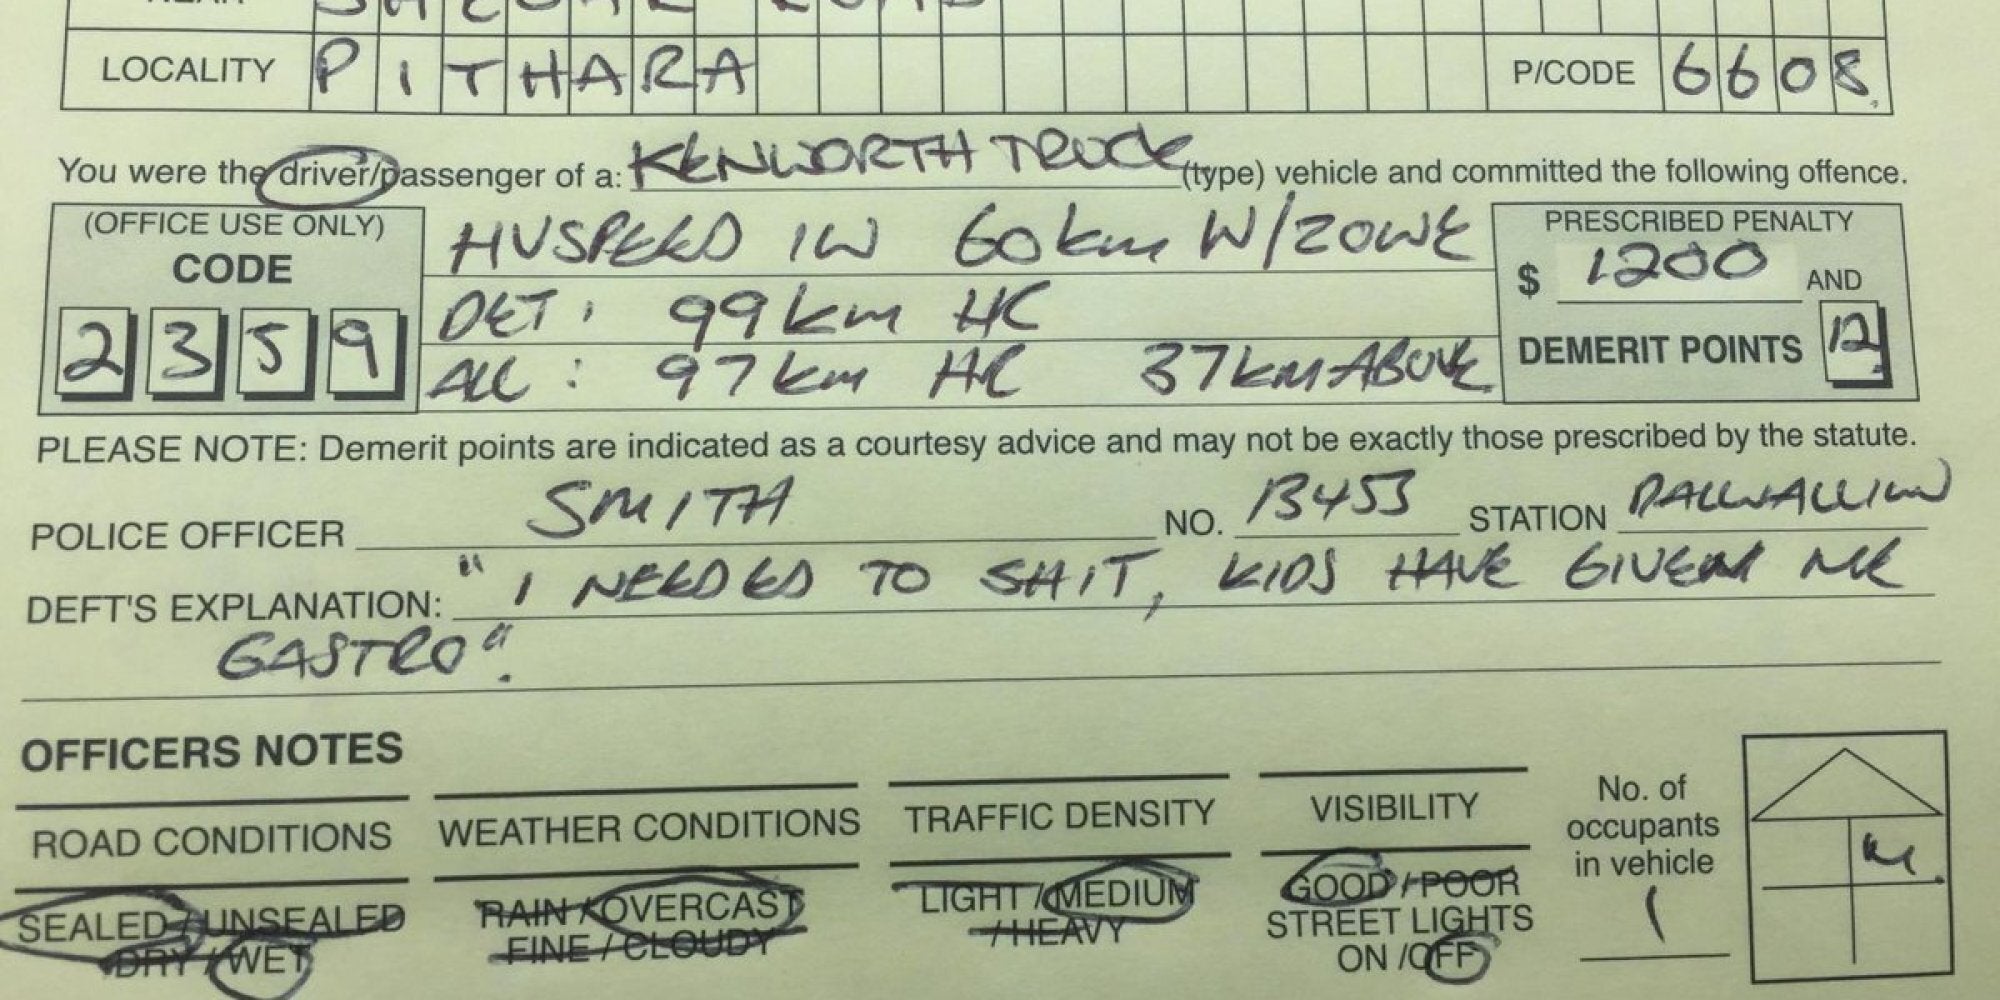 LOCALITY PITHARA P/CODE 6608
You were the driver/passenger of a: KENWORTH TRUCK (type) vehicle and committed the following offence.
(OFFICE USE ONLY)
CODE
2359
HVSPEED IN 60km W/ZONE
DET: 99km HC
ALL: 97km HC 37km ABOVE
PRESCRIBED PENALTY
$ 1200 AND
DEMERIT POINTS 12
PLEASE NOTE: Demerit points are indicated as a courtesy advice and may not be exactly those prescribed by the statute.
POLICE OFFICER SMITH NO. 13453 STATION DALWALLINU
DEFT'S EXPLANATION: " I NEEDED TO SHIT, KIDS HAVE GIVEN ME
GASTRO".
OFFICERS NOTES
ROAD CONDITIONS
SEALED / UNSEALED
DRY / WET
WEATHER CONDITIONS
RAIN / OVERCAST
FINE / CLOUDY
TRAFFIC DENSITY
LIGHT / MEDIUM
/ HEAVY
VISIBILITY
GOOD / POOR
STREET LIGHTS
ON / OFF
No. of
occupants
in vehicle
1